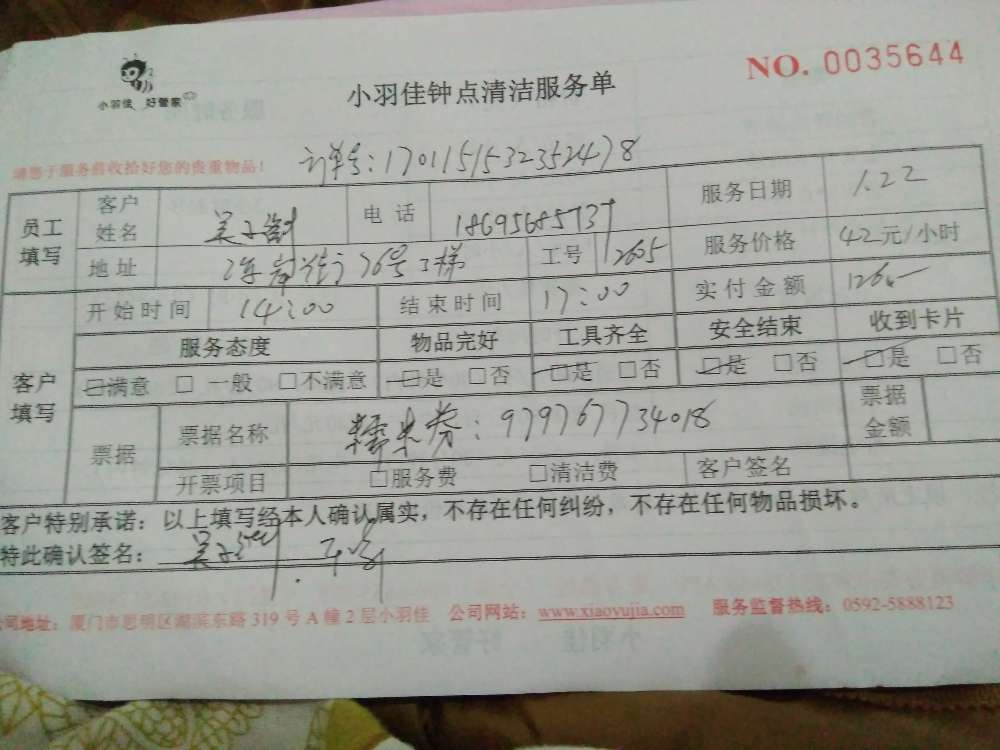 NO. 0035644
小羽佳 好管家
小羽佳钟点清洁服务单
请您于服务前收拾好您的贵重物品！
订单号：1701151532352478
员工填写 客户姓名 吴 电话 18695685737 服务日期 1.22
地址 76号 梯 工号 12605 服务价格 42元/小时
客户填写 开始时间 14:00 结束时间 17:00 实付金额 126
服务态度 物品完好 工具齐全 安全结束 收到卡片
□满意 □一般 □不满意 □是 □否 □是 □否 □是 □否 □是 □否
票据 票据名称 糯米券：979767734018 票据金额
开票项目 □服务费 □清洁费 客户签名
客户特别承诺：以上填写经本人确认属实，不存在任何纠纷，不存在任何物品损坏。
特此确认签名：吴
公司地址：厦门市思明区湖滨东路 319 号 A 幢 2 层小羽佳 公司网站：www.xiaoyujia.com 服务监督热线：0592-5888123